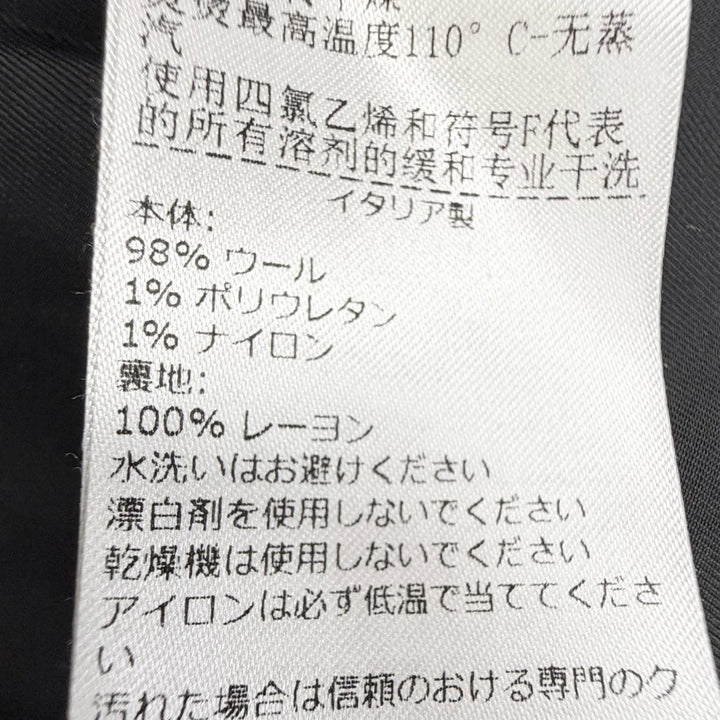 燥
烫最高温度110° C-无蒸
汽
使用四氯乙烯和符号F代表
的所有溶剂的缓和专业干洗
イタリア製
本体:
98% ウール
1% ポリウレタン
1% ナイロン
裏地:
100% レーヨン
水洗いはお避けください
漂白剤を使用しないでください
乾燥機は使用しないでください
アイロンは必ず低温で当ててくださ
い
汚れた場合は信頼のおける専門のク